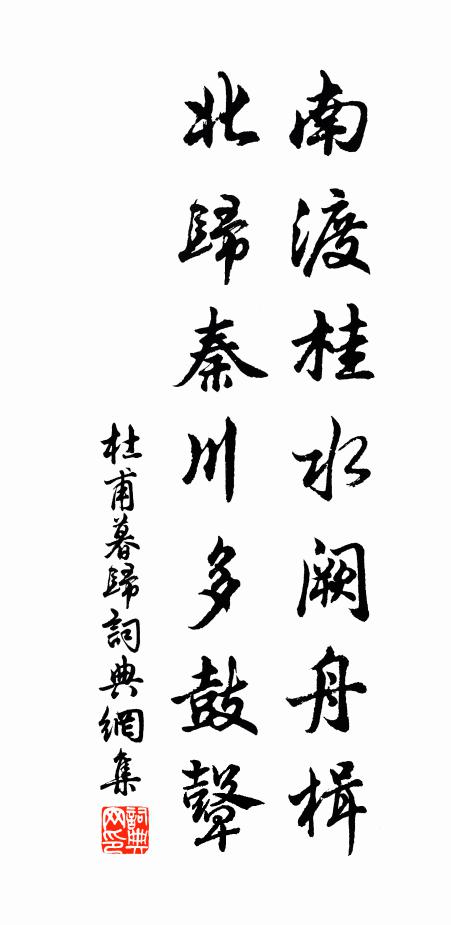 南渡桂水闕舟楫
北歸秦川多鼓鼙
杜甫暮歸詞典網集
詞典网印